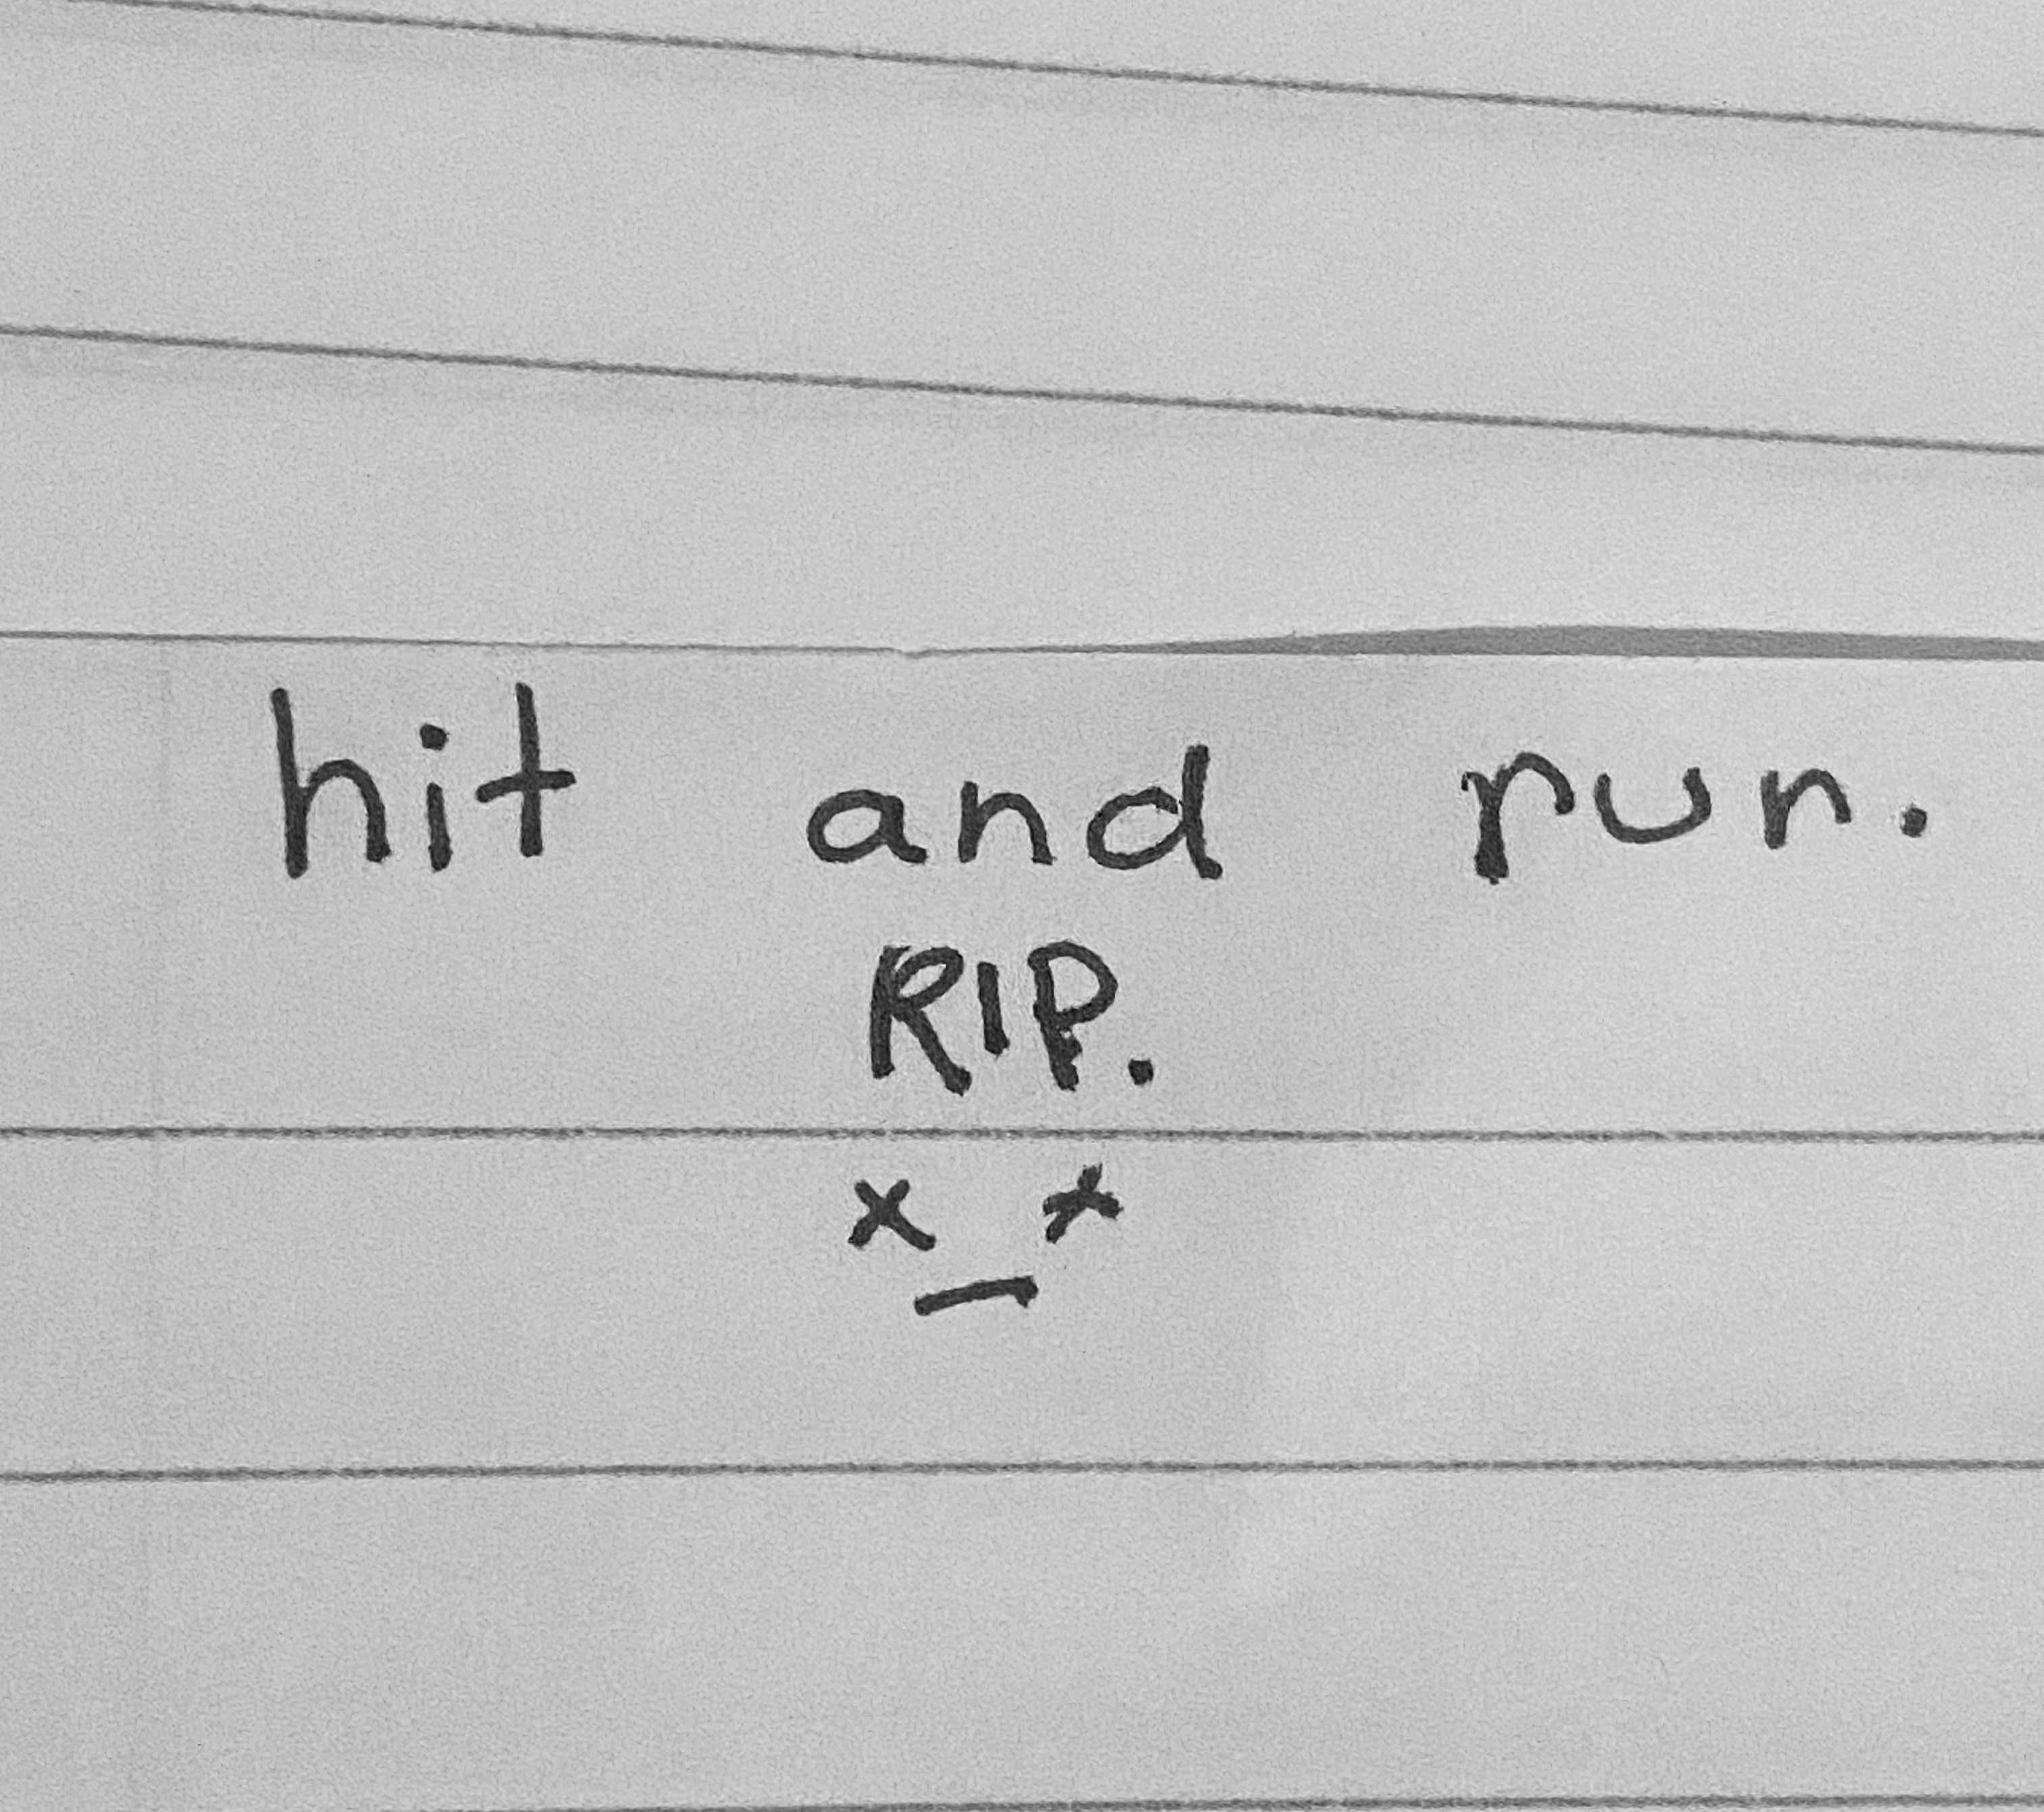 hit and run.
RIP.
x_x